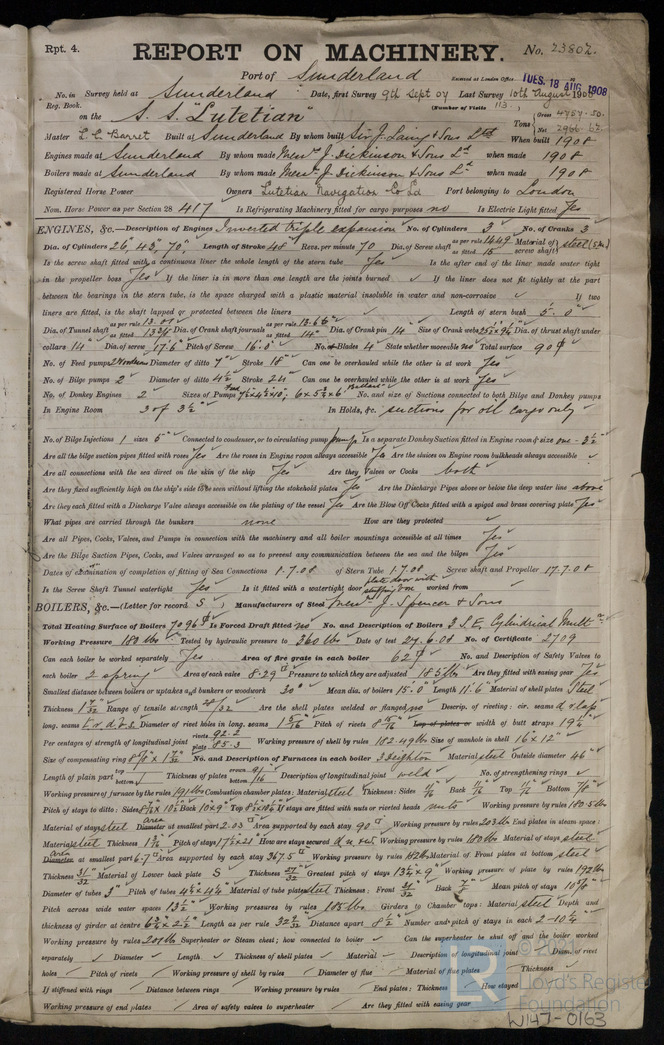 Rpt. 4.
REPORT ON MACHINERY.
No. 23802.
Port of Sunderland
Received at London Office TUES. 18 AUG 1908
No. in Survey held at Sunderland Date, first Survey 9th Sept 07 Last Survey 10th August 1908
Reg. Book. (Number of Visits 113)
on the S. S. "Lutetian" Tons Gross 4757.50 Net 2966.62
Master Barret Built at Sunderland By whom built Sir J. Laing & Sons Ltd When built 1908
Engines made at Sunderland By whom made Messrs J. Dickinson & Sons Ld when made 1908
Boilers made at Sunderland By whom made Messrs J. Dickinson & Sons Ld when made 1908
Registered Horse Power Owners Lutetian Navigation Co Ld Port belonging to London
Nom. Horse Power as per Section 28 417 Is Refrigerating Machinery fitted for cargo purposes no Is Electric Light fitted Yes
ENGINES, &c.—Description of Engines Inverted triple expansion No. of Cylinders 3 No. of Cranks 3
Dia. of Cylinders 26" 43" 70" Length of Stroke 48" Revs. per minute 70 Dia. of Screw shaft as per rule 14.49 as fitted 15 Material of screw shaft steel
Is the screw shaft fitted with a continuous liner the whole length of the stern tube Yes Is the after end of the liner made water tight
in the propeller boss Yes If the liner is in more than one length are the joints burned If the liner does not fit tightly at the part
between the bearings in the stern tube, is the space charged with a plastic material insoluble in water and non-corrosive If two
liners are fitted, is the shaft lapped or protected between the liners Length of stern bush 5'. 0"
Dia. of Tunnel shaft as per rule as fitted Dia. of Crank shaft journals as per rule 13.66" as fitted 14" Dia. of Crank pin 14" Size of Crank webs Dia. of thrust shaft under
collars 14" Dia. of screw 17'.6" Pitch of Screw 16'.0" No. of Blades 4 State whether moveable no Total surface 90
No. of Feed pumps 2 Diameter of ditto 7" Stroke 18" Can one be overhauled while the other is at work Yes
No. of Bilge pumps 2 Diameter of ditto 4½" Stroke 24" Can one be overhauled while the other is at work Yes
No. of Donkey Engines 2 Sizes of Pumps No. and size of Suctions connected to both Bilge and Donkey pumps
In Engine Room 3 of 3½" In Holds, &c. suctions for oil cargo only
No. of Bilge Injections 1 sizes 5" Connected to condenser, or to circulating pump pump Is a separate Donkey Suction fitted in Engine room & size one - 3½"
Are all the bilge suction pipes fitted with roses Yes Are the roses in Engine room always accessible Yes Are the sluices on Engine room bulkheads always accessible
Are all connections with the sea direct on the skin of the ship Yes Are they Valves or Cocks both
Are they fixed sufficiently high on the ship's side to be seen without lifting the stokehold plates Yes Are the Discharge Pipes above or below the deep water line above
Are they each fitted with a Discharge Valve always accessible on the plating of the vessel Yes Are the Blow Off Cocks fitted with a spigot and brass covering plate Yes
What pipes are carried through the bunkers none How are they protected
Are all Pipes, Cocks, Valves, and Pumps in connection with the machinery and all boiler mountings accessible at all times Yes
Are the Bilge Suction Pipes, Cocks, and Valves arranged so as to prevent any communication between the sea and the bilges Yes
Dates of examination of completion of fitting of Sea Connections 1.7.08 of Stern Tube 1.7.08 Screw shaft and Propeller 17.7.08
Is the Screw Shaft Tunnel watertight Yes Is it fitted with a watertight door plate door with stuffing box worked from
BOILERS, &c.—(Letter for record S) Manufacturers of Steel Messrs J. Spencer & Sons
Total Heating Surface of Boilers 7096 Is Forced Draft fitted no No. and Description of Boilers 3 S.E. Cylindrical Mult
Working Pressure 180 lbs Tested by hydraulic pressure to 360 lbs Date of test 27.6.08 No. of Certificate 2709
Can each boiler be worked separately Yes Area of fire grate in each boiler 62 No. and Description of Safety Valves to
each boiler 2 spring Area of each valve 8.29 Pressure to which they are adjusted 185 lbs Are they fitted with easing gear Yes
Smallest distance between boilers or uptakes and bunkers or woodwork 30" Mean dia. of boilers 15'.0" Length 11'.6" Material of shell plates Steel
Thickness Range of tensile strength 28/32 Are the shell plates welded or flanged no Descrip. of riveting: cir. seams d. r. lap
long. seams Diameter of rivet holes in long. seams 1 5/16 Pitch of rivets Lap of plates or width of butt straps 19¼
Per centages of strength of longitudinal joint rivets 92.2 plate 85.3 Working pressure of shell by rules 182.49 lbs Size of manhole in shell 16" x 12"
Size of compensating ring No. and Description of Furnaces in each boiler 3 Deighton Material steel Outside diameter 46"
Length of plain part top bottom Thickness of plates crown bottom 9/16 Description of longitudinal joint weld No. of strengthening rings
Working pressure of furnace by the rules 191 lbs Combustion chamber plates: Material steel Thickness: Sides Back Top Bottom
Pitch of stays to ditto: Sides Back 10" x 9" Top If stays are fitted with nuts or riveted heads nuts Working pressure by rules 180.5 lbs
Material of stays steel Area Diameter at smallest part 2.03 Area supported by each stay 90 Working pressure by rules 203 lbs End plates in steam space:
Material steel Thickness Pitch of stays 17½ x 21 How are stays secured Working pressure by rules 180 lbs Material of stays steel
Area Diameter at smallest part 6.7 Area supported by each stay 367.5 Working pressure by rules Material of Front plates at bottom steel
Thickness 31/32 Material of Lower back plate S Thickness 27/32 Greatest pitch of stays 13½ x 9" Working pressure of plate by rules 192 lbs
Diameter of tubes 3" Pitch of tubes 4¼ x 4¼ Material of tube plates steel Thickness: Front Back Mean pitch of stays
Pitch across wide water spaces 13½ Working pressures by rules 185 lbs Girders to Chamber tops: Material steel Depth and
thickness of girder at centre Length as per rule Distance apart 8½" Number and pitch of stays in each 2 - 10¼"
Working pressure by rules Superheater or Steam chest; how connected to boiler Can the superheater be shut off and the boiler worked
separately Diameter Length Thickness of shell plates Material Description of longitudinal joint Diam. of rivet
holes Pitch of rivets Working pressure of shell by rules Diameter of flue Material of flue plates Thickness
If stiffened with rings Distance between rings Working pressure by rules End plates: Thickness How stayed
Working pressure of end plates Area of safety valves to superheater Are they fitted with easing gear
LR
© 2021
Lloyd's Register
Foundation
W147-0163